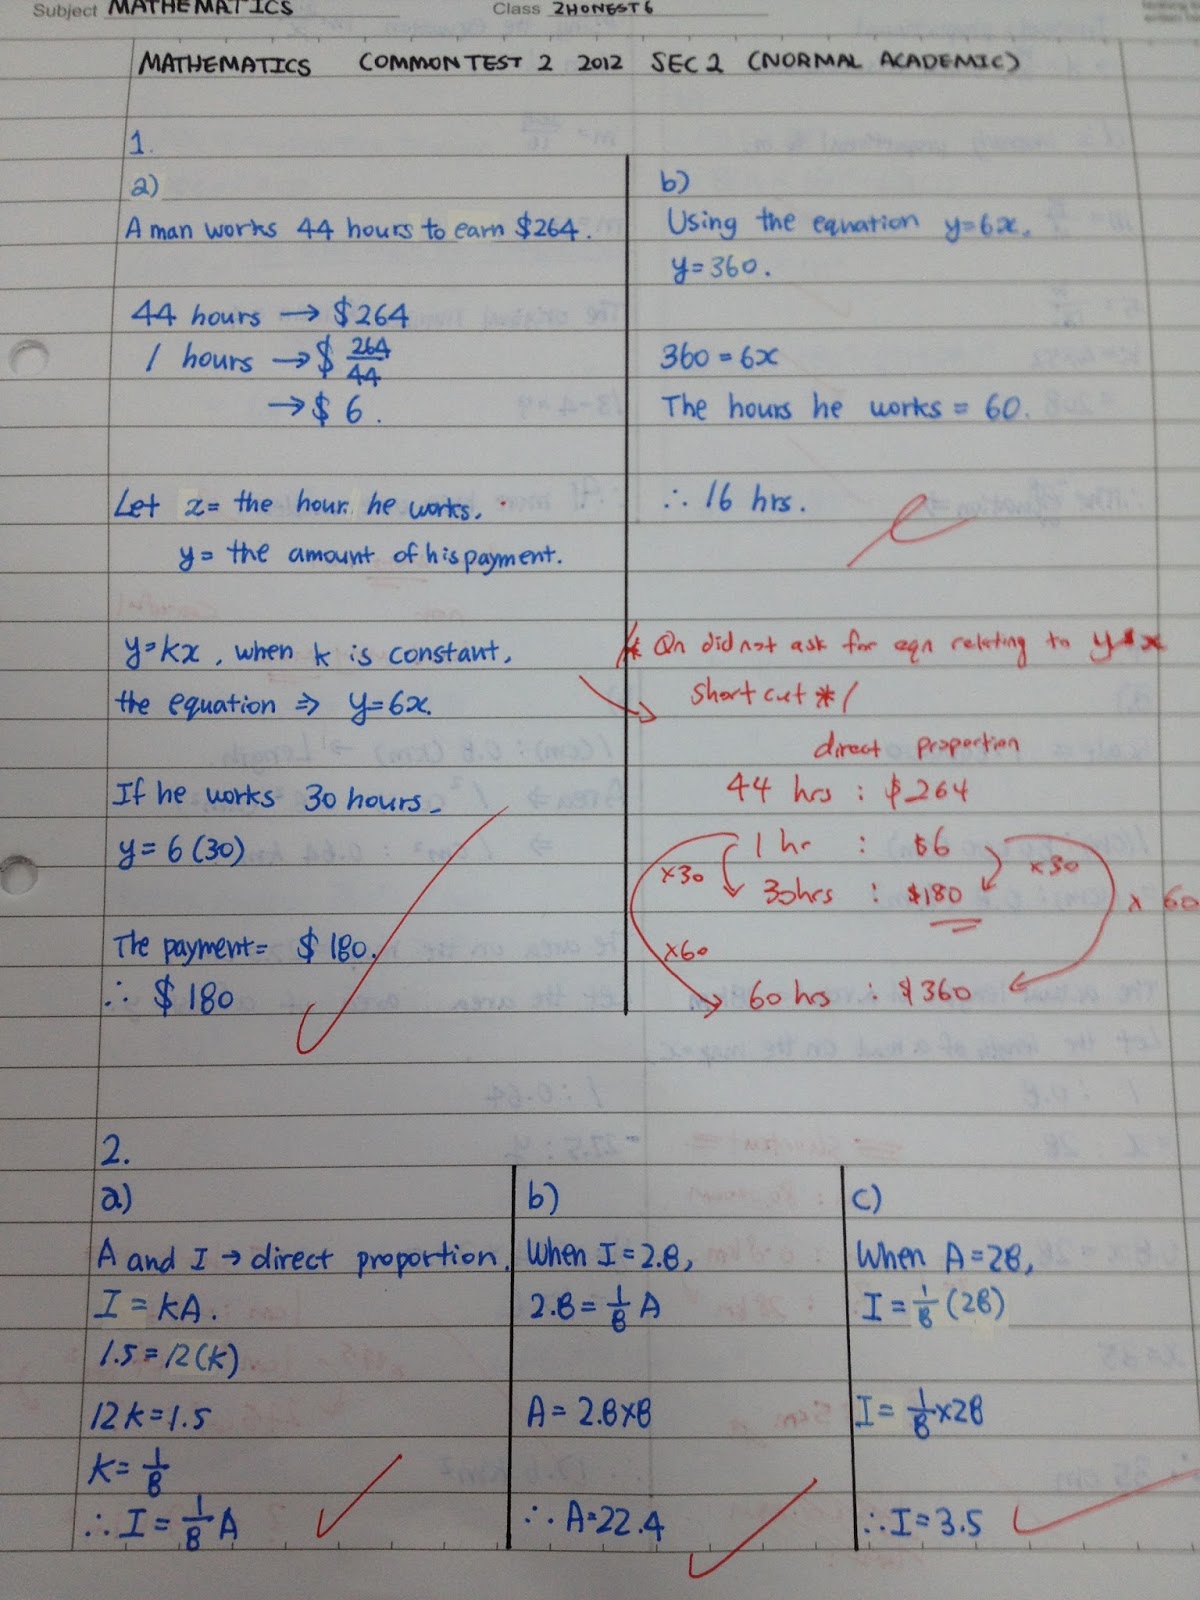 Subject MATHEMATICS Class 2HONEST6
MATHEMATICS COMMON TEST 2 2012 SEC 2 (NORMAL ACADEMIC)
1.
a)
A man works 44 hours to earn $264.
44 hours → $264
1 hours → $ 264/44
→ $ 6.
Let x = the hour he works.
y = the amount of his payment.
y=kx, when k is constant,
the equation ⇒ y=6x.
If he works 30 hours.
y = 6(30)
The payment = $ 180.
∴ $ 180
b)
Using the equation y=6x.
y=360.
360=6x
The hours he works = 60.
∴ 16 hrs.
/* Qn did not ask for eqn relating to y & x
short cut */
direct proportion
44 hrs : $264
1 hr : $6
×30 30hrs : $180 ×30
×60
×60
60 hrs : $360
2.
a)
A and I → direct proportion.
I = kA.
1.5 = 12(k)
12k = 1.5
k = 1/8
∴ I = 1/8 A
b)
When I = 2.8,
2.8 = 1/8 A
A = 2.8×8
∴ A = 22.4
c)
When A = 28,
I = 1/8 (28)
I = 1/8 × 28
∴ I = 3.5